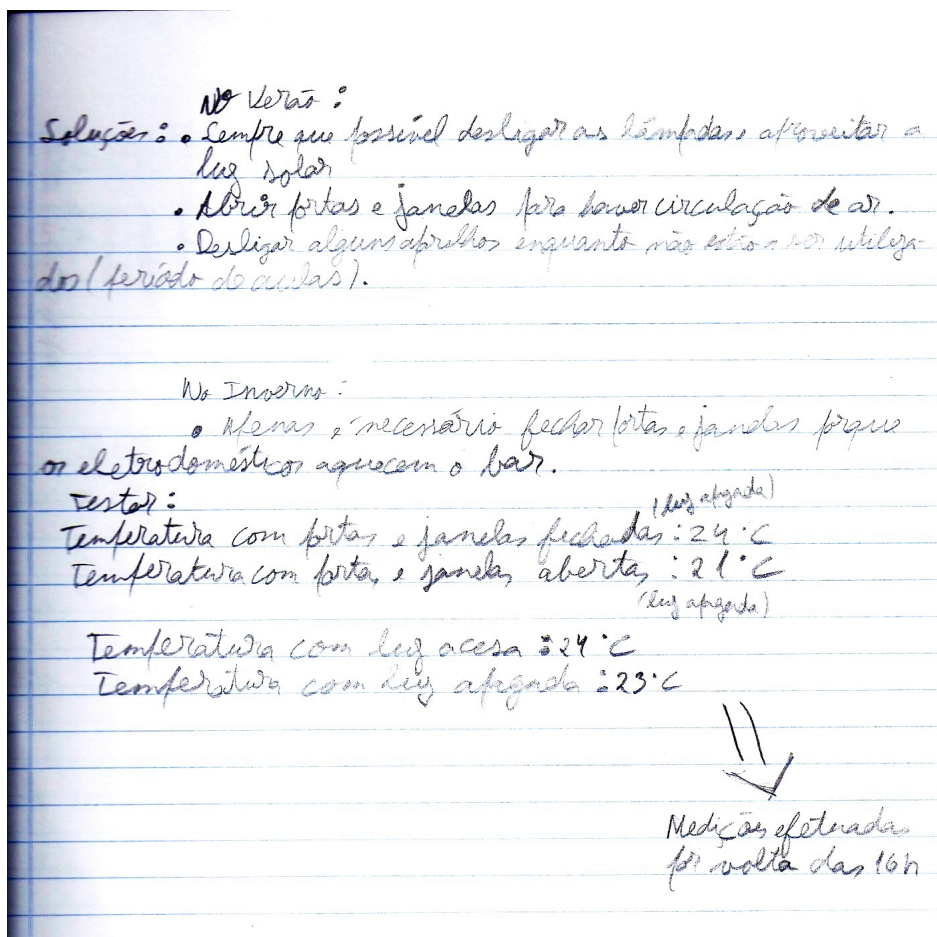 No Verão :
Soluções : • Sempre que possível desligar as lâmpadas e aproveitar a
luz solar
• Abrir portas e janelas para haver circulação de ar.
• Desligar alguns aparelhos enquanto não estão a ser utiliza-
dos (período de aulas).
No Inverno :
• Apenas é necessário fechar portas e janelas porque
os eletrodomésticos aquecem o bar.
Testar :
(luz apagada)
Temperatura com portas e janelas fechadas : 24 °C
Temperatura com portas e janelas abertas : 21 °C
(luz apagada)
Temperatura com luz acesa : 24 °C
Temperatura com luz apagada : 23 °C
Medições efetuadas
por volta das 16h